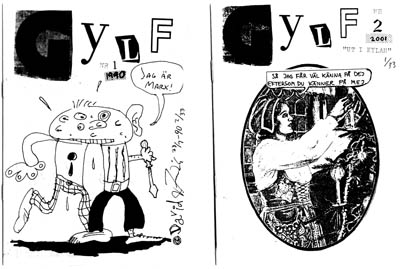 GYLF
NR 1
1990
JAG ÄR
MARK!
GYLF
NR
2
2001
"UT I KYLAN"
1/93
SÅ JAG FÅR VÄL KÄNNA PÅ DEJ
EFTERSOM DU KÄNNER PÅ MEJ